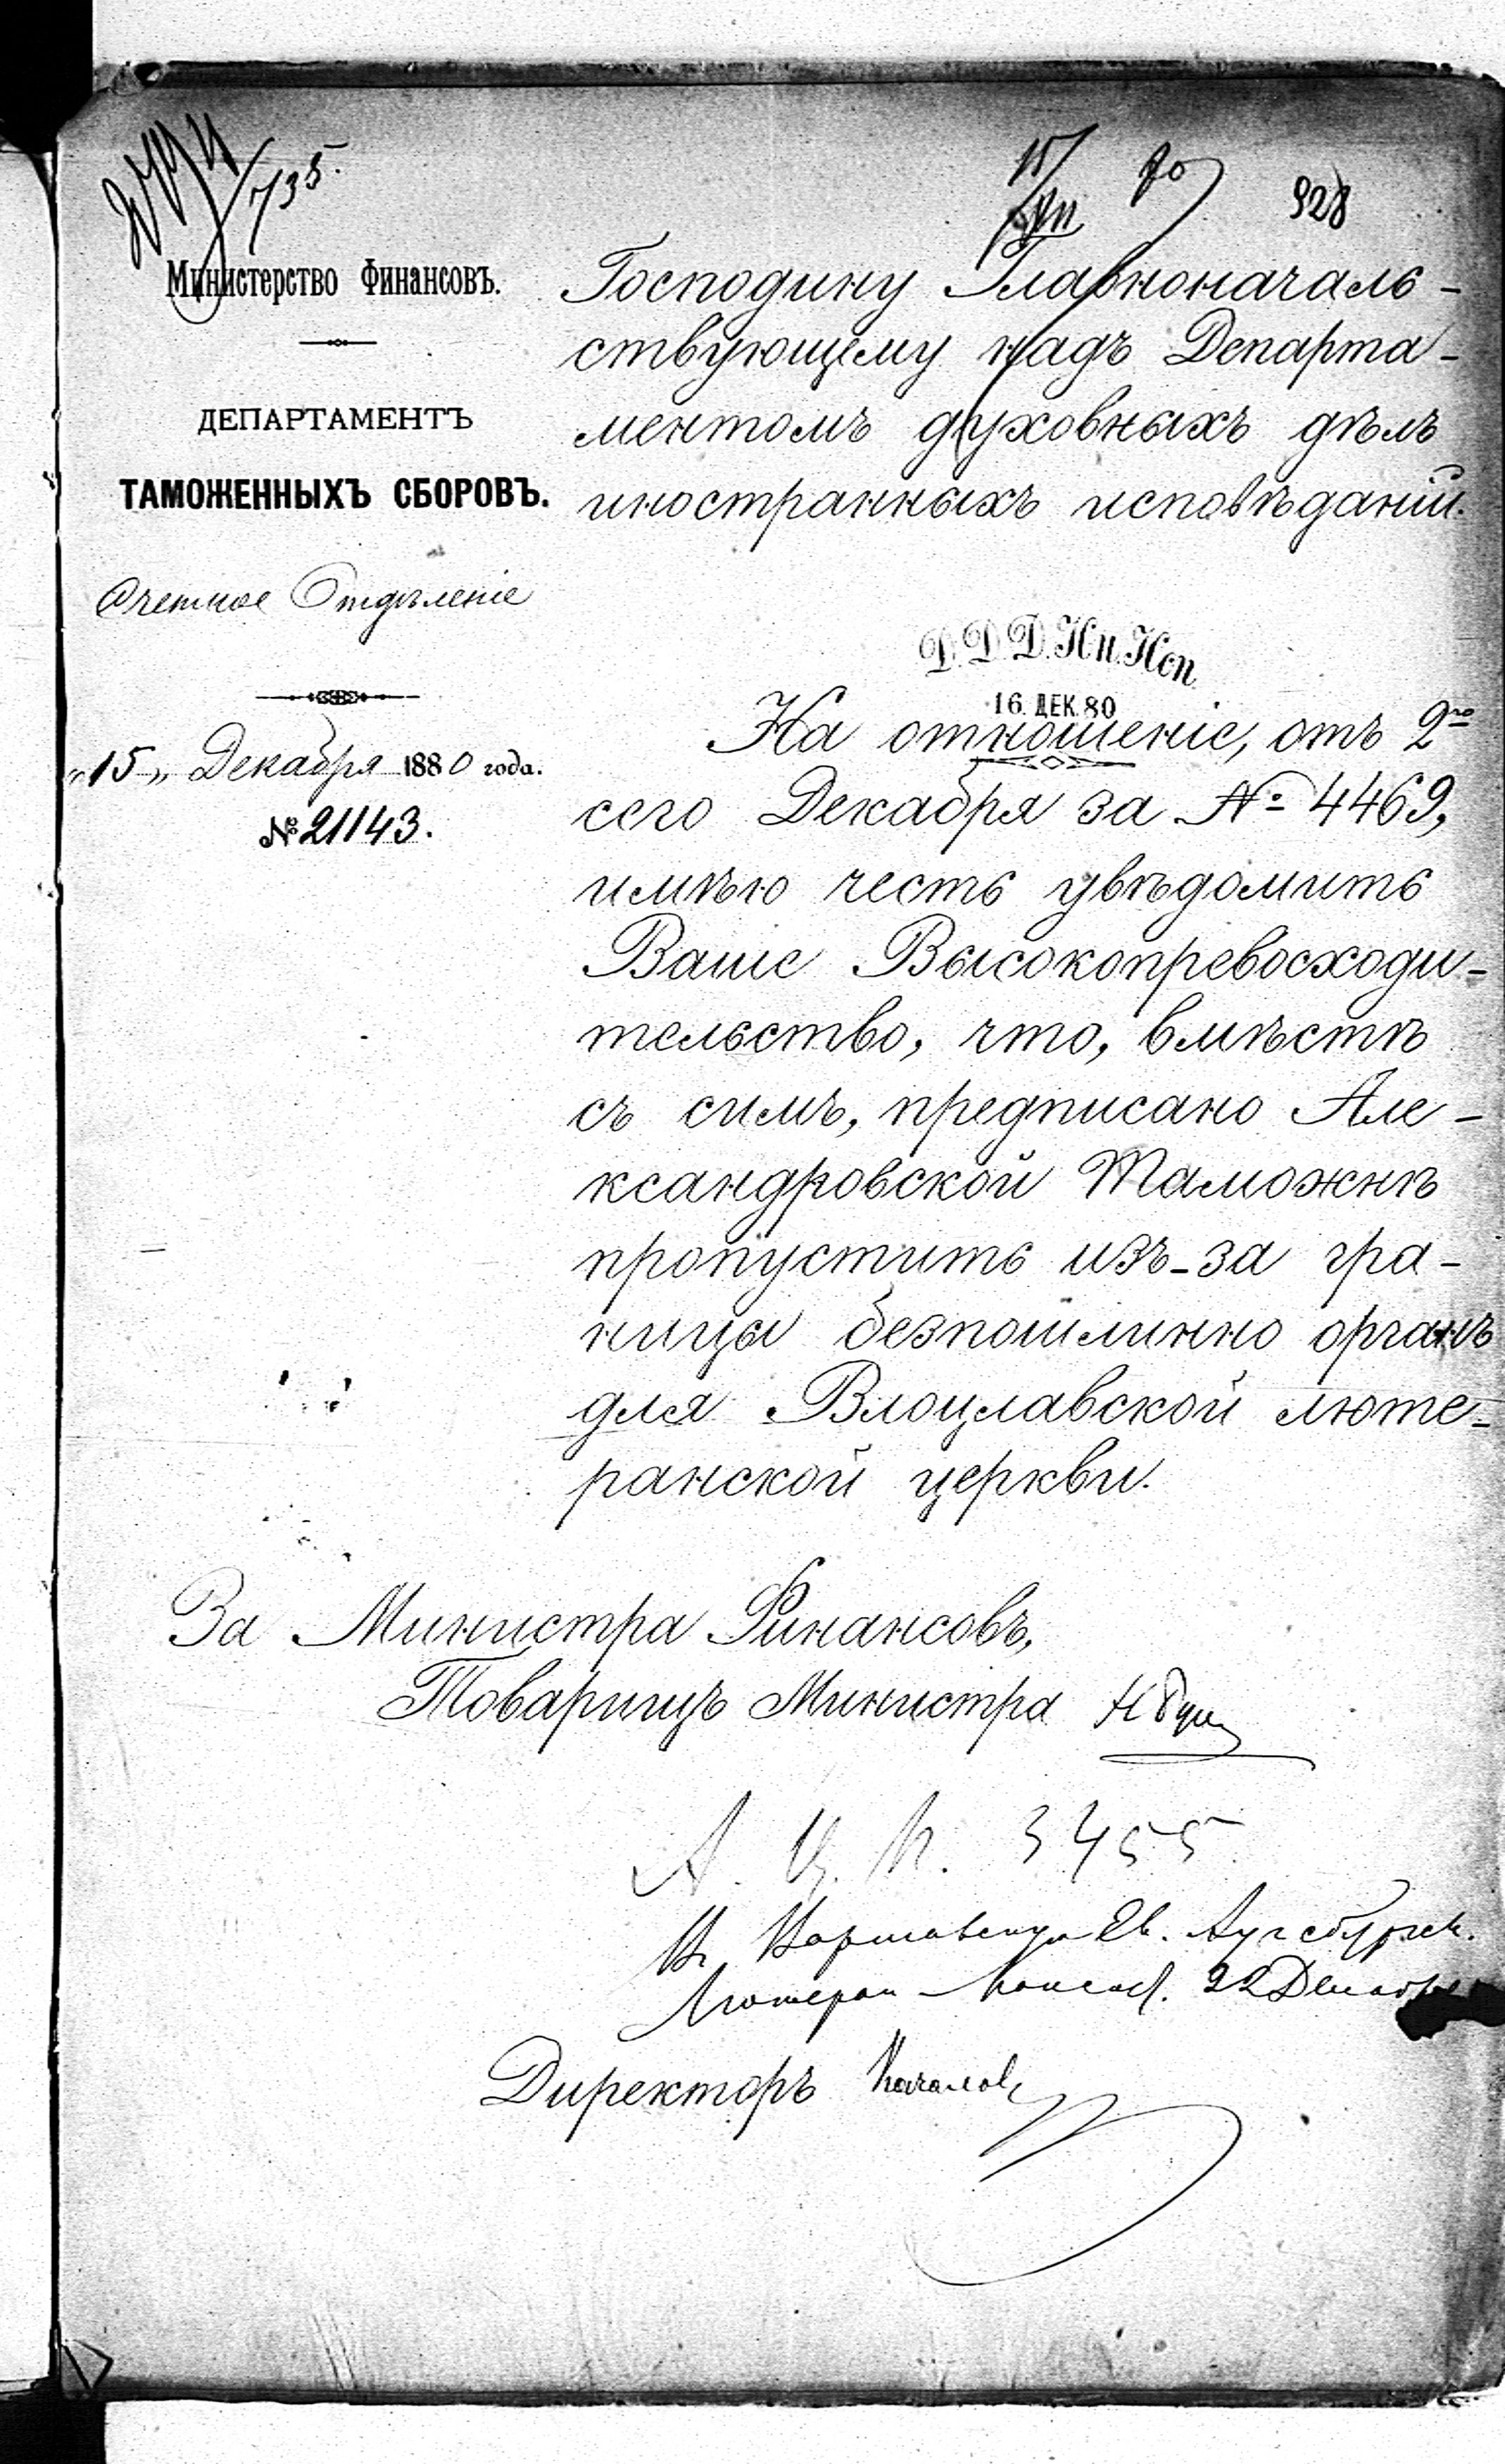 735.
15/XII
80
928
Министерство Финансовъ.
ДЕПАРТАМЕНТЪ
ТАМОЖЕННЫХЪ СБОРОВЪ.
Счетное Отдѣленіе
„15„ Декабря 1880 года.
№ 21143.
Господину Главноначаль-
ствующему надъ Департа-
ментомъ духовныхъ дѣлъ
иностранныхъ исповѣданій.
Д.Д.Д.Ин.Исп
16. ДЕК. 80
На отношеніе, отъ 2го
сего Декабря за № 4469,
имѣю честь увѣдомить
Ваше Высокопревосходи-
тельство, что, вмѣстѣ
съ симъ, предписано Але-
ксандровской Таможнѣ
пропустить изъ-за гра-
ницы безпошлинно органъ
для Влоцлавской люте-
ранской церкви.
За Министра Финансовъ,
Товарищъ Министра Н Бунге
3455
В. Варшавскую Ев. Аугсбургск.
Лютеран Консист. 22 Декабря
Директоръ Качаловъ